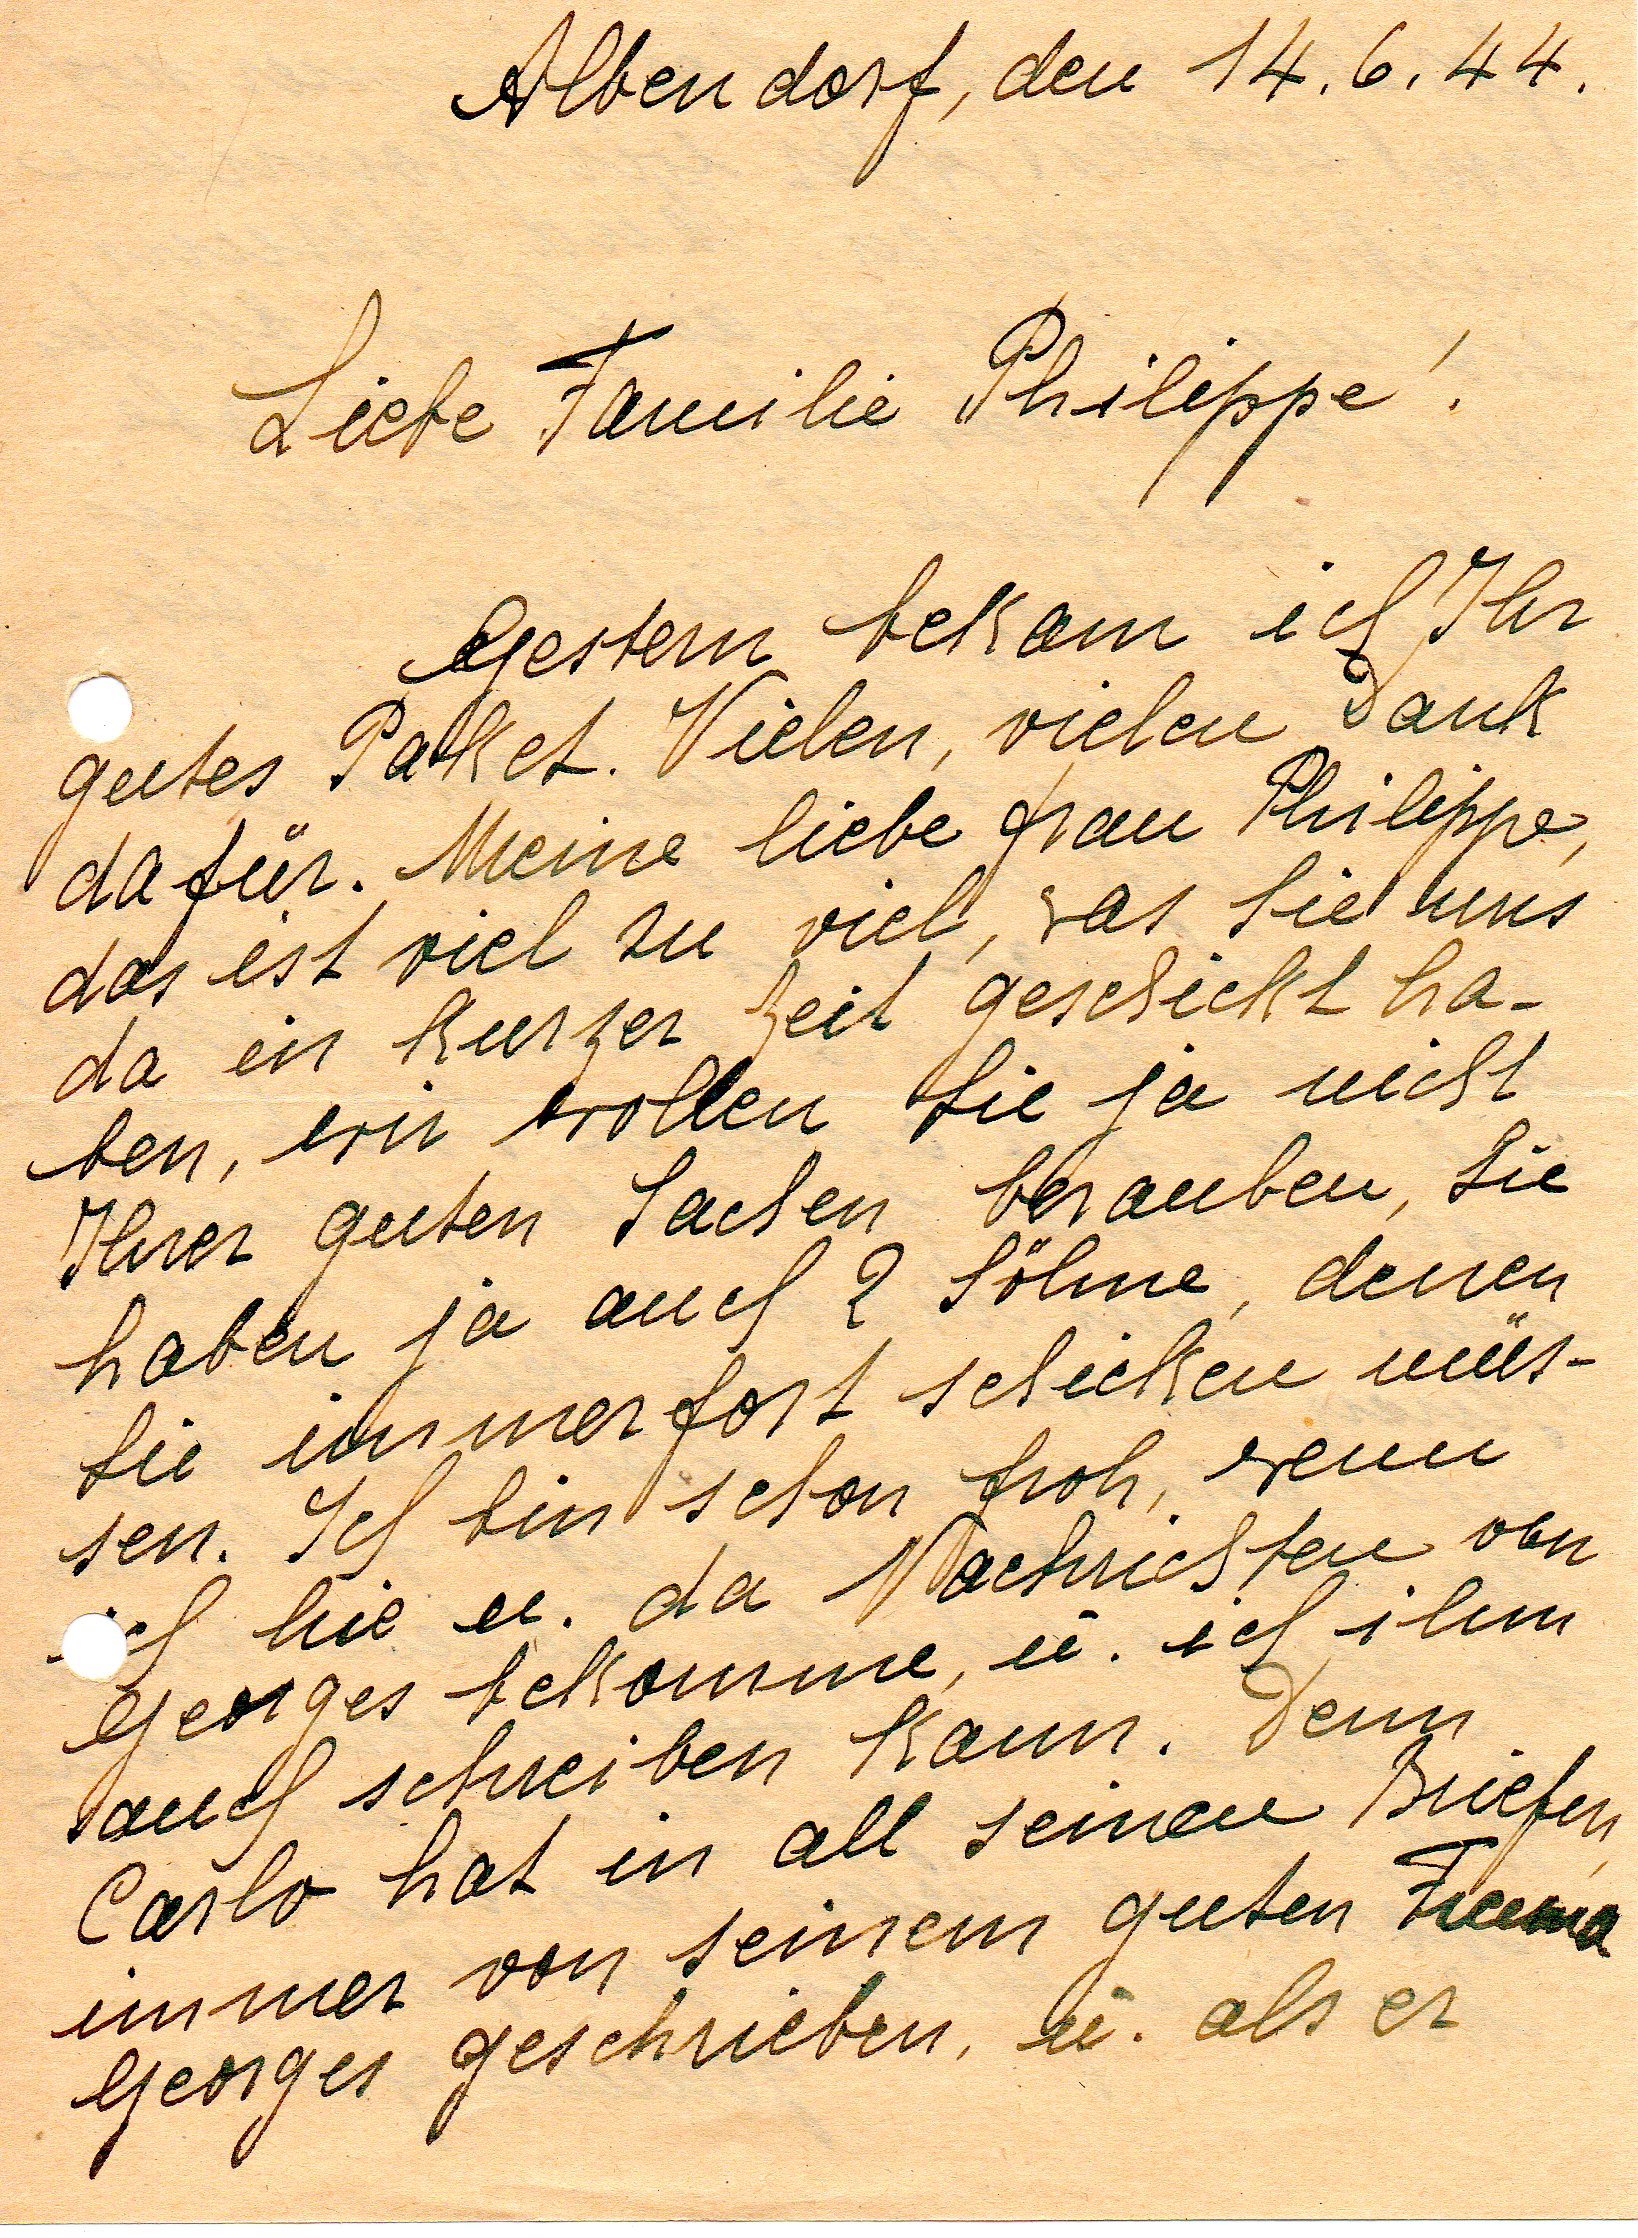 Albendorf, den 14.6.44.
Liebe Familie Philippe!
Gestern bekam ich Ihr
gutes Paket. Vielen, vielen Dank
dafür. Meine liebe Frau Philippe,
das ist viel zu viel, was Sie uns
da in kurzer Zeit geschickt ha-
ben, wir wollen Sie ja nicht
Ihrer guten Sachen berauben, Sie
haben ja auch 2 Söhne, denen
Sie immerfort schicken müs-
sen. Ich bin schon froh, wenn
ich hie u. da Nachrichten von
Georges bekomme, u. ich ihm
auch schreiben kann. Denn
Carlo hat in all seinen Briefen,
immer von seinem guten
Georges geschrieben, u. als er